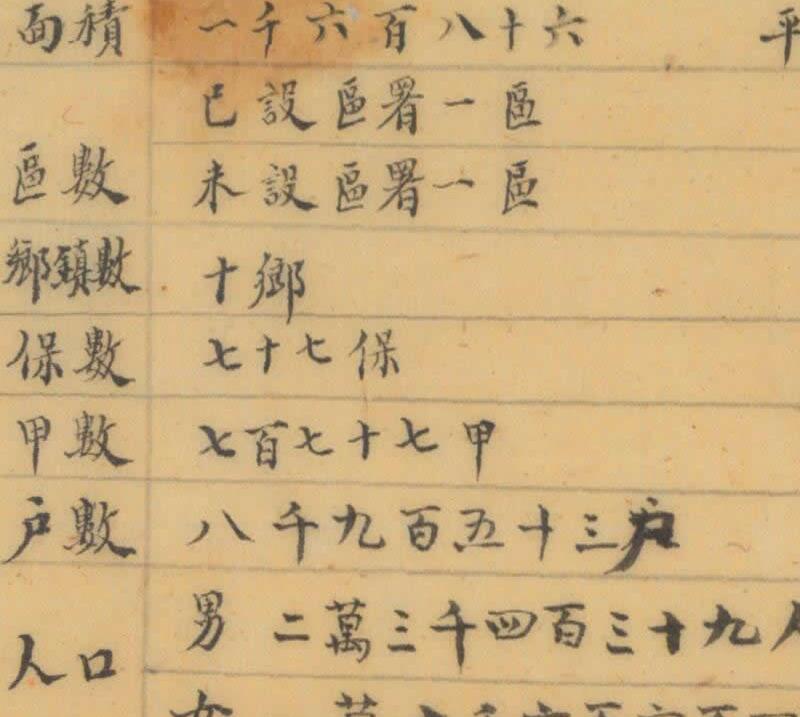 面積 一千六百八十六 平
已設區署一區
區數
未設區署一區
鄉鎮數 十鄉
保數 七十七保
甲數 七百七十七甲
户數 八千九百五十三户
男 二萬三千四百三十九人
人口
女 萬